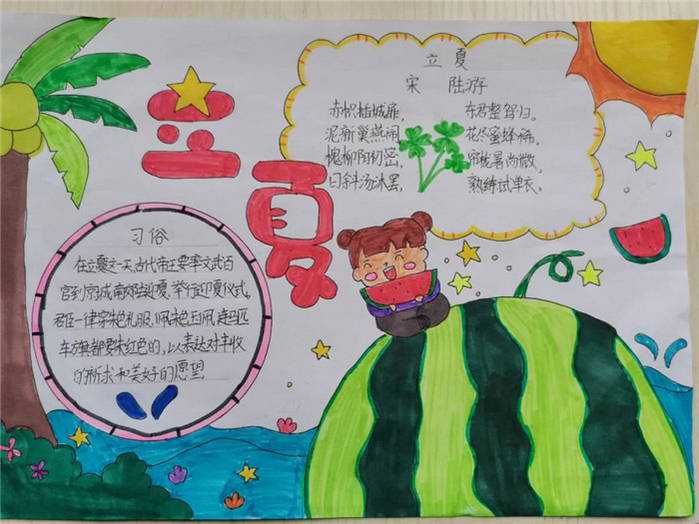 立夏
立夏
宋 陆游
赤帜插城扉,东君整驾归。
泥新巢燕闹,花尽蜜蜂稀。
槐柳阴初密,帘栊暑尚微。
日斜汤沐罢,熟练试单衣。
习俗
在立夏之一天,古代帝王要率文武百
官到京城南郊迎夏,举行迎夏仪式。
君臣一律穿朱色礼服,佩朱色玉佩,连马匹
车旗都要朱红色的,以表达对丰收
的祈求和美好的愿望